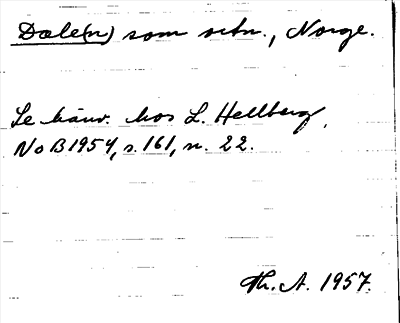 Dale(n) som ortn., Norge.
Se hänv. hos L. Hellberg,
NoB 1954, s. 161, n. 22.
Th. A. 1957.